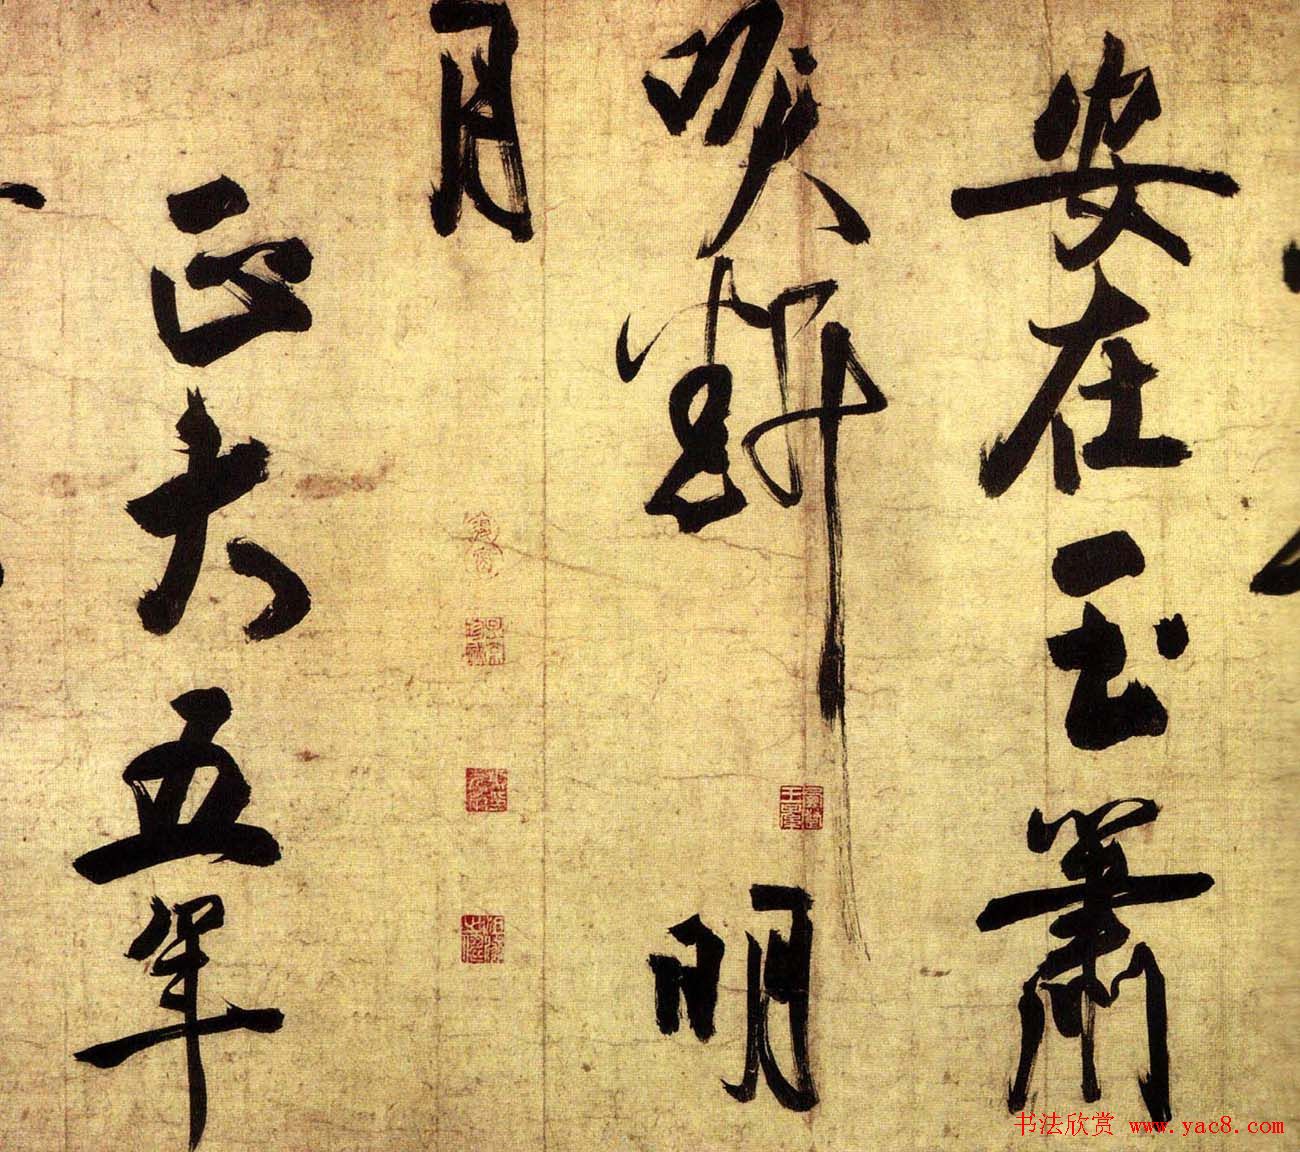 安在玉簫
吹斷明
月
正大五年
书法欣赏 www.yac8.com